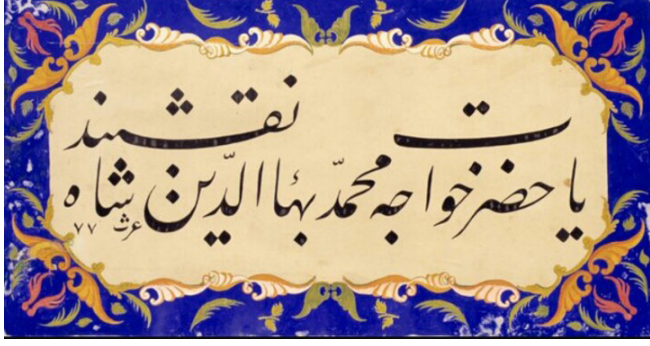 یا حضرت خواجه محمّد بهاءالدّین شاه نقشبند
٧٧